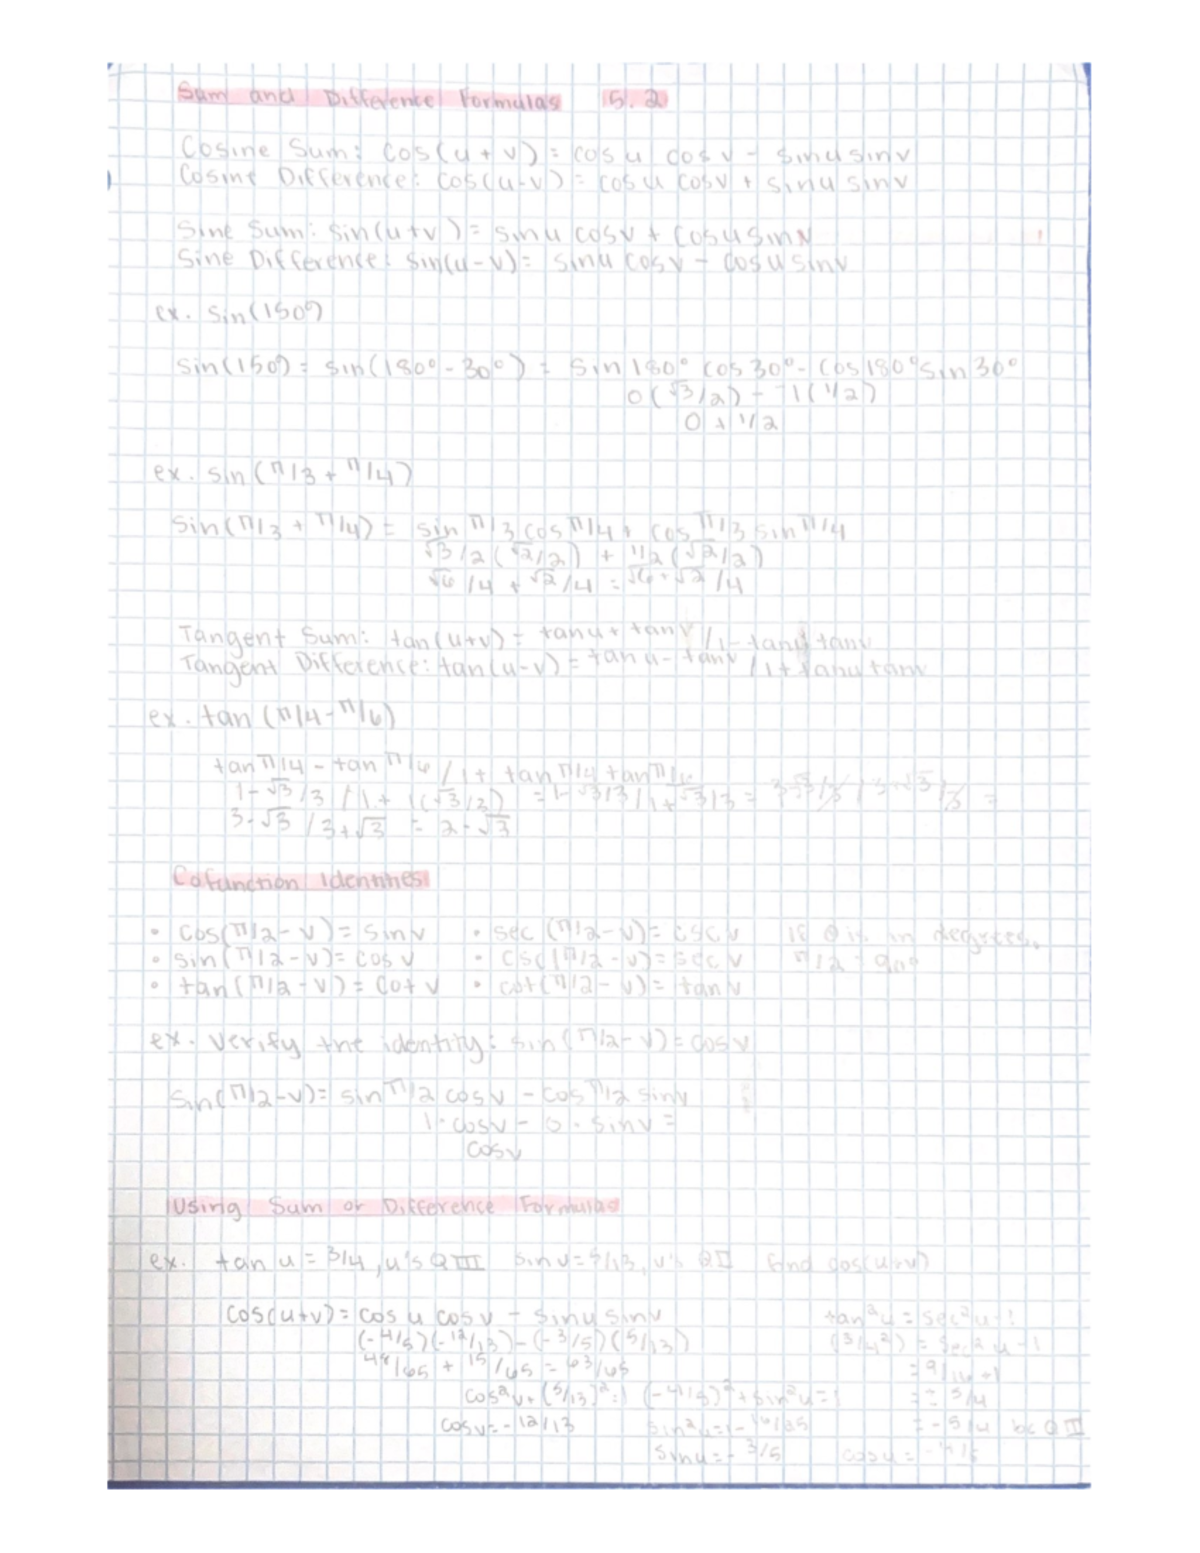 Sum and Difference Formulas 5.2
Cosine Sum: cos(u + v) = cos u cos v - sinu sinv
Cosine Difference: cos(u-v) = cos u cosv + sinu sinv
Sine Sum: sin(u+v) = sinu cosv + cosusinv
Sine Difference: sin(u-v) = sinu cosv - cosusinv
ex. sin(150°)
sin(150°) = sin(180° - 30°) = sin 180° cos 30° - cos 180° sin 30°
0(√3/2) - -1(1/2)
0 + 1/2
ex. sin(π/3 + π/4)
sin(π/3 + π/4) = sin π/3 cos π/4 + cos π/3 sin π/4
√3/2 (√2/2) + 1/2 (√2/2)
√6/4 + √2/4 = √6+√2/4
Tangent Sum: tan(u+v) = tanu + tanv /1- tanu tanv
Tangent Difference: tan(u-v) = tanu - tanv /1+ tanu tanv
ex. tan (π/4-π/6)
tan π/4 - tan π/6 / 1+ tan π/4 tan π/6
1-√3/3 / 1+ 1(√3/3) = 1-√3/3 / 1+√3/3 = 3-√3/3 / 3+√3/3 =
3-√3 / 3+√3 = 2-√3
Cofunction Identities
• cos(π/2 - v) = sinv • sec (π/2-v) = csc v If θ is in degrees,
• sin(π/2-v) = cos v • csc(π/2 - v) = sec v π/2 = 90°
• tan(π/2-v) = cot v • cot(π/2-v) = tan v
ex. Verify the identity: sin(π/2-v) = cosv
sin(π/2-v) = sin π/2 cosv - cos π/2 sinv
1·cosv - 0·sinv =
cosv
Using Sum or Difference Formulas
ex. tan u = 3/4, u's QIII sin v = 5/13, v's QII find cos(u+v)
cos(u+v) = cos u cos v - sinu sinv tan²u = sec²u-1
(-4/5)(-12/13) - (-3/5)(5/13) (3/4²) = sec²u-1
48/65 + 15/65 = 63/65 = 9/16+1
cos²v+(5/13)²=1 (-4/5)²+sin²u=1 = ± 5/4
cosv=-12/13 sin²u=1-16/25 = -5/4 bc QIII
sinu=-3/5 cosu=-4/5